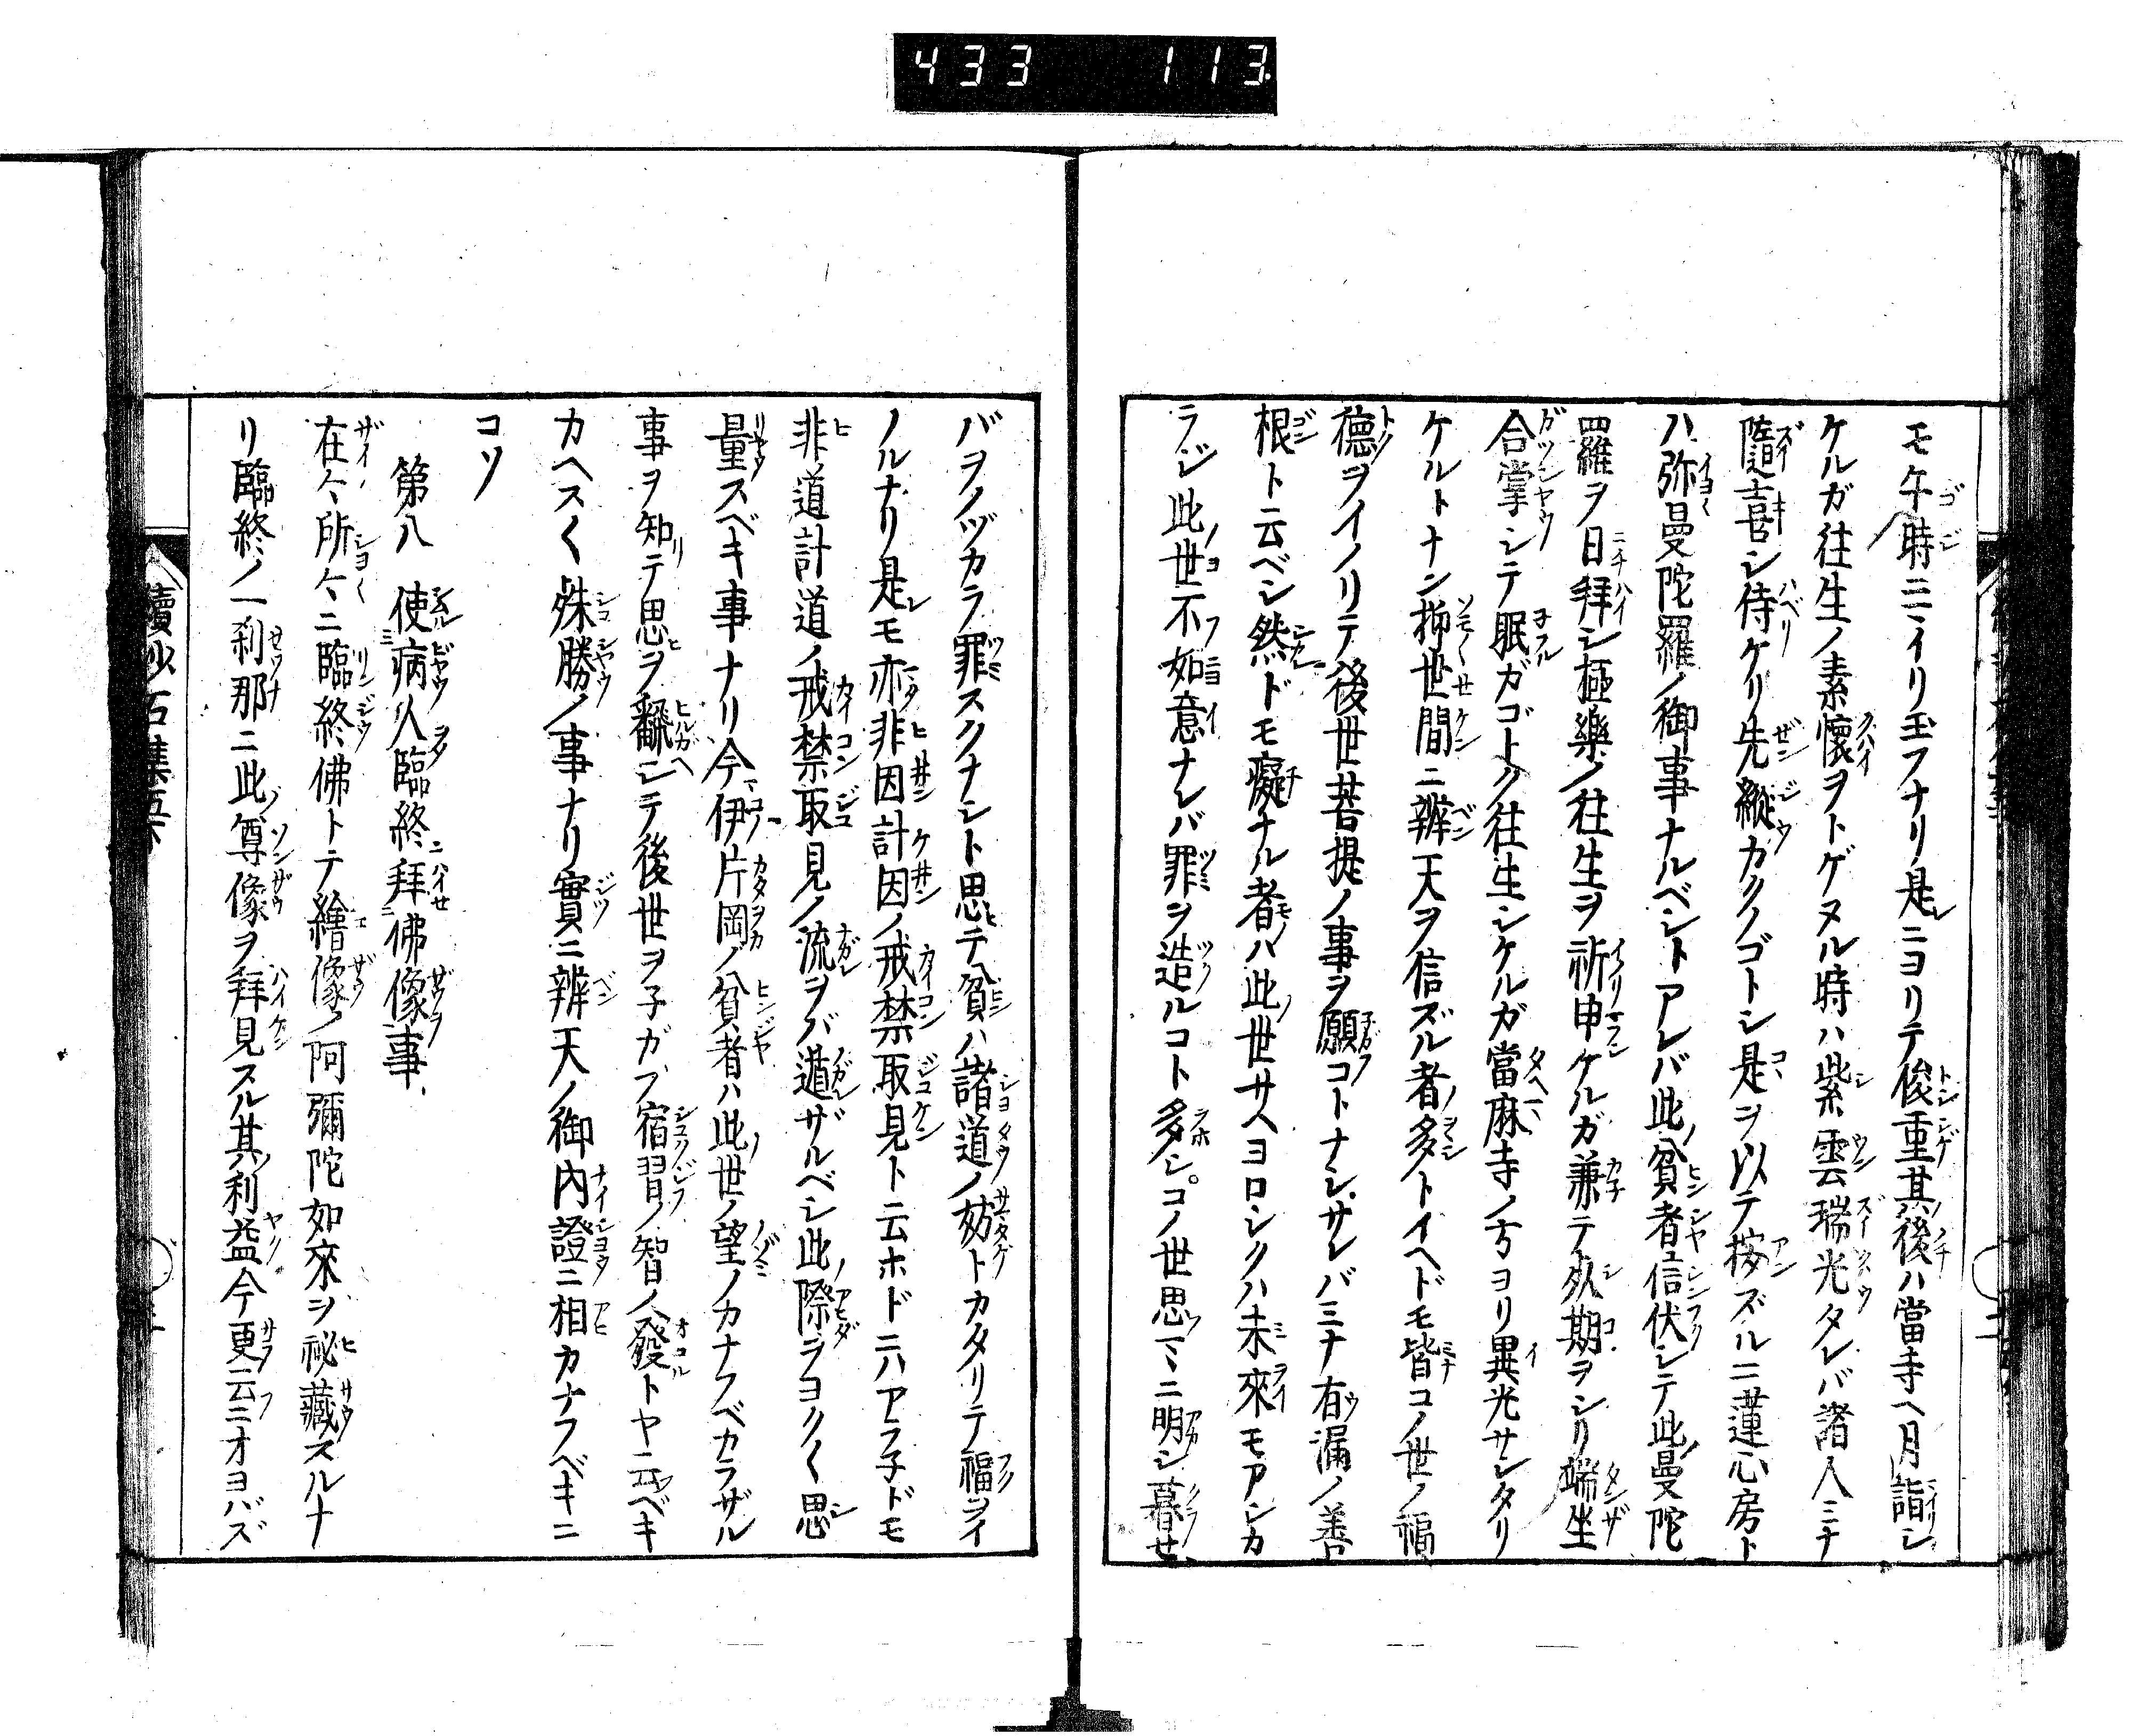 433 113
モ午時ニイリ玉フナリ是ニヨリテ俊重其後ハ當寺ヘ月詣シ
ケルガ往生ノ素懷ヲトゲヌル時ハ紫雲瑞光タレバ諸人ミナ
隨喜シ侍ケリ先縱カクノゴトシ是ヲ以テ按ズルニ蓮心房ト
ハ弥曼陀羅ノ御事ナルベシトアレバ此貧者信伏シテ此曼陀
羅ヲ日拜シ極樂ノ往生ヲ祈申ケルガ兼テ死期ヲシリ端坐
合掌シテ眠ガゴトク往生シケルガ當麻寺ノ方ヨリ異光サシタリ
ケルトナン抑世間ニ辨天ヲ信ズル者多トイヘドモ皆コノ世ノ福
德ヲイノリテ後世菩提ノ事ヲ願コトナシサレバミナ有漏ノ善
根ト云ベシ然ドモ癡ナル者ハ此世サヘヨロシクハ未來モアシカ
ラジ此世不如意ナレバ罪ヲ造ルコト多シ。コノ世思マヽニ明シ暮セ
バヲノヅカラ罪スクナシト思テ貧ハ諸道ノ妨トカタリテ福ヲイ
ノルナリ是モ亦非因計因ノ戒禁取見ト云ホドニハアラ子ドモ
非道計道ノ戒禁取見ノ流ヲバ遁ザルベシ此際ヲヨク〱思
量スベキ事ナリ今伊片岡ノ貧者ハ此世ノ望ノカナフベカラザル
事ヲ知テ思ヲ翻シテ後世ヲ子ガフ宿習ノ智ノ發トヤ云ベキ
カヘス〱殊勝ノ事ナリ實ニ辨天ノ御內證ニ相カナフベキニ
コソ
第八 使病人臨終拜佛像事
在々所々ニ臨終佛トテ繪像ノ阿彌陀如來ヲ祕藏スルナ
リ臨終ノ一刹那ニ此尊像ヲ拜見スル其利益今更云ニオヨバズ
續沙石集五下